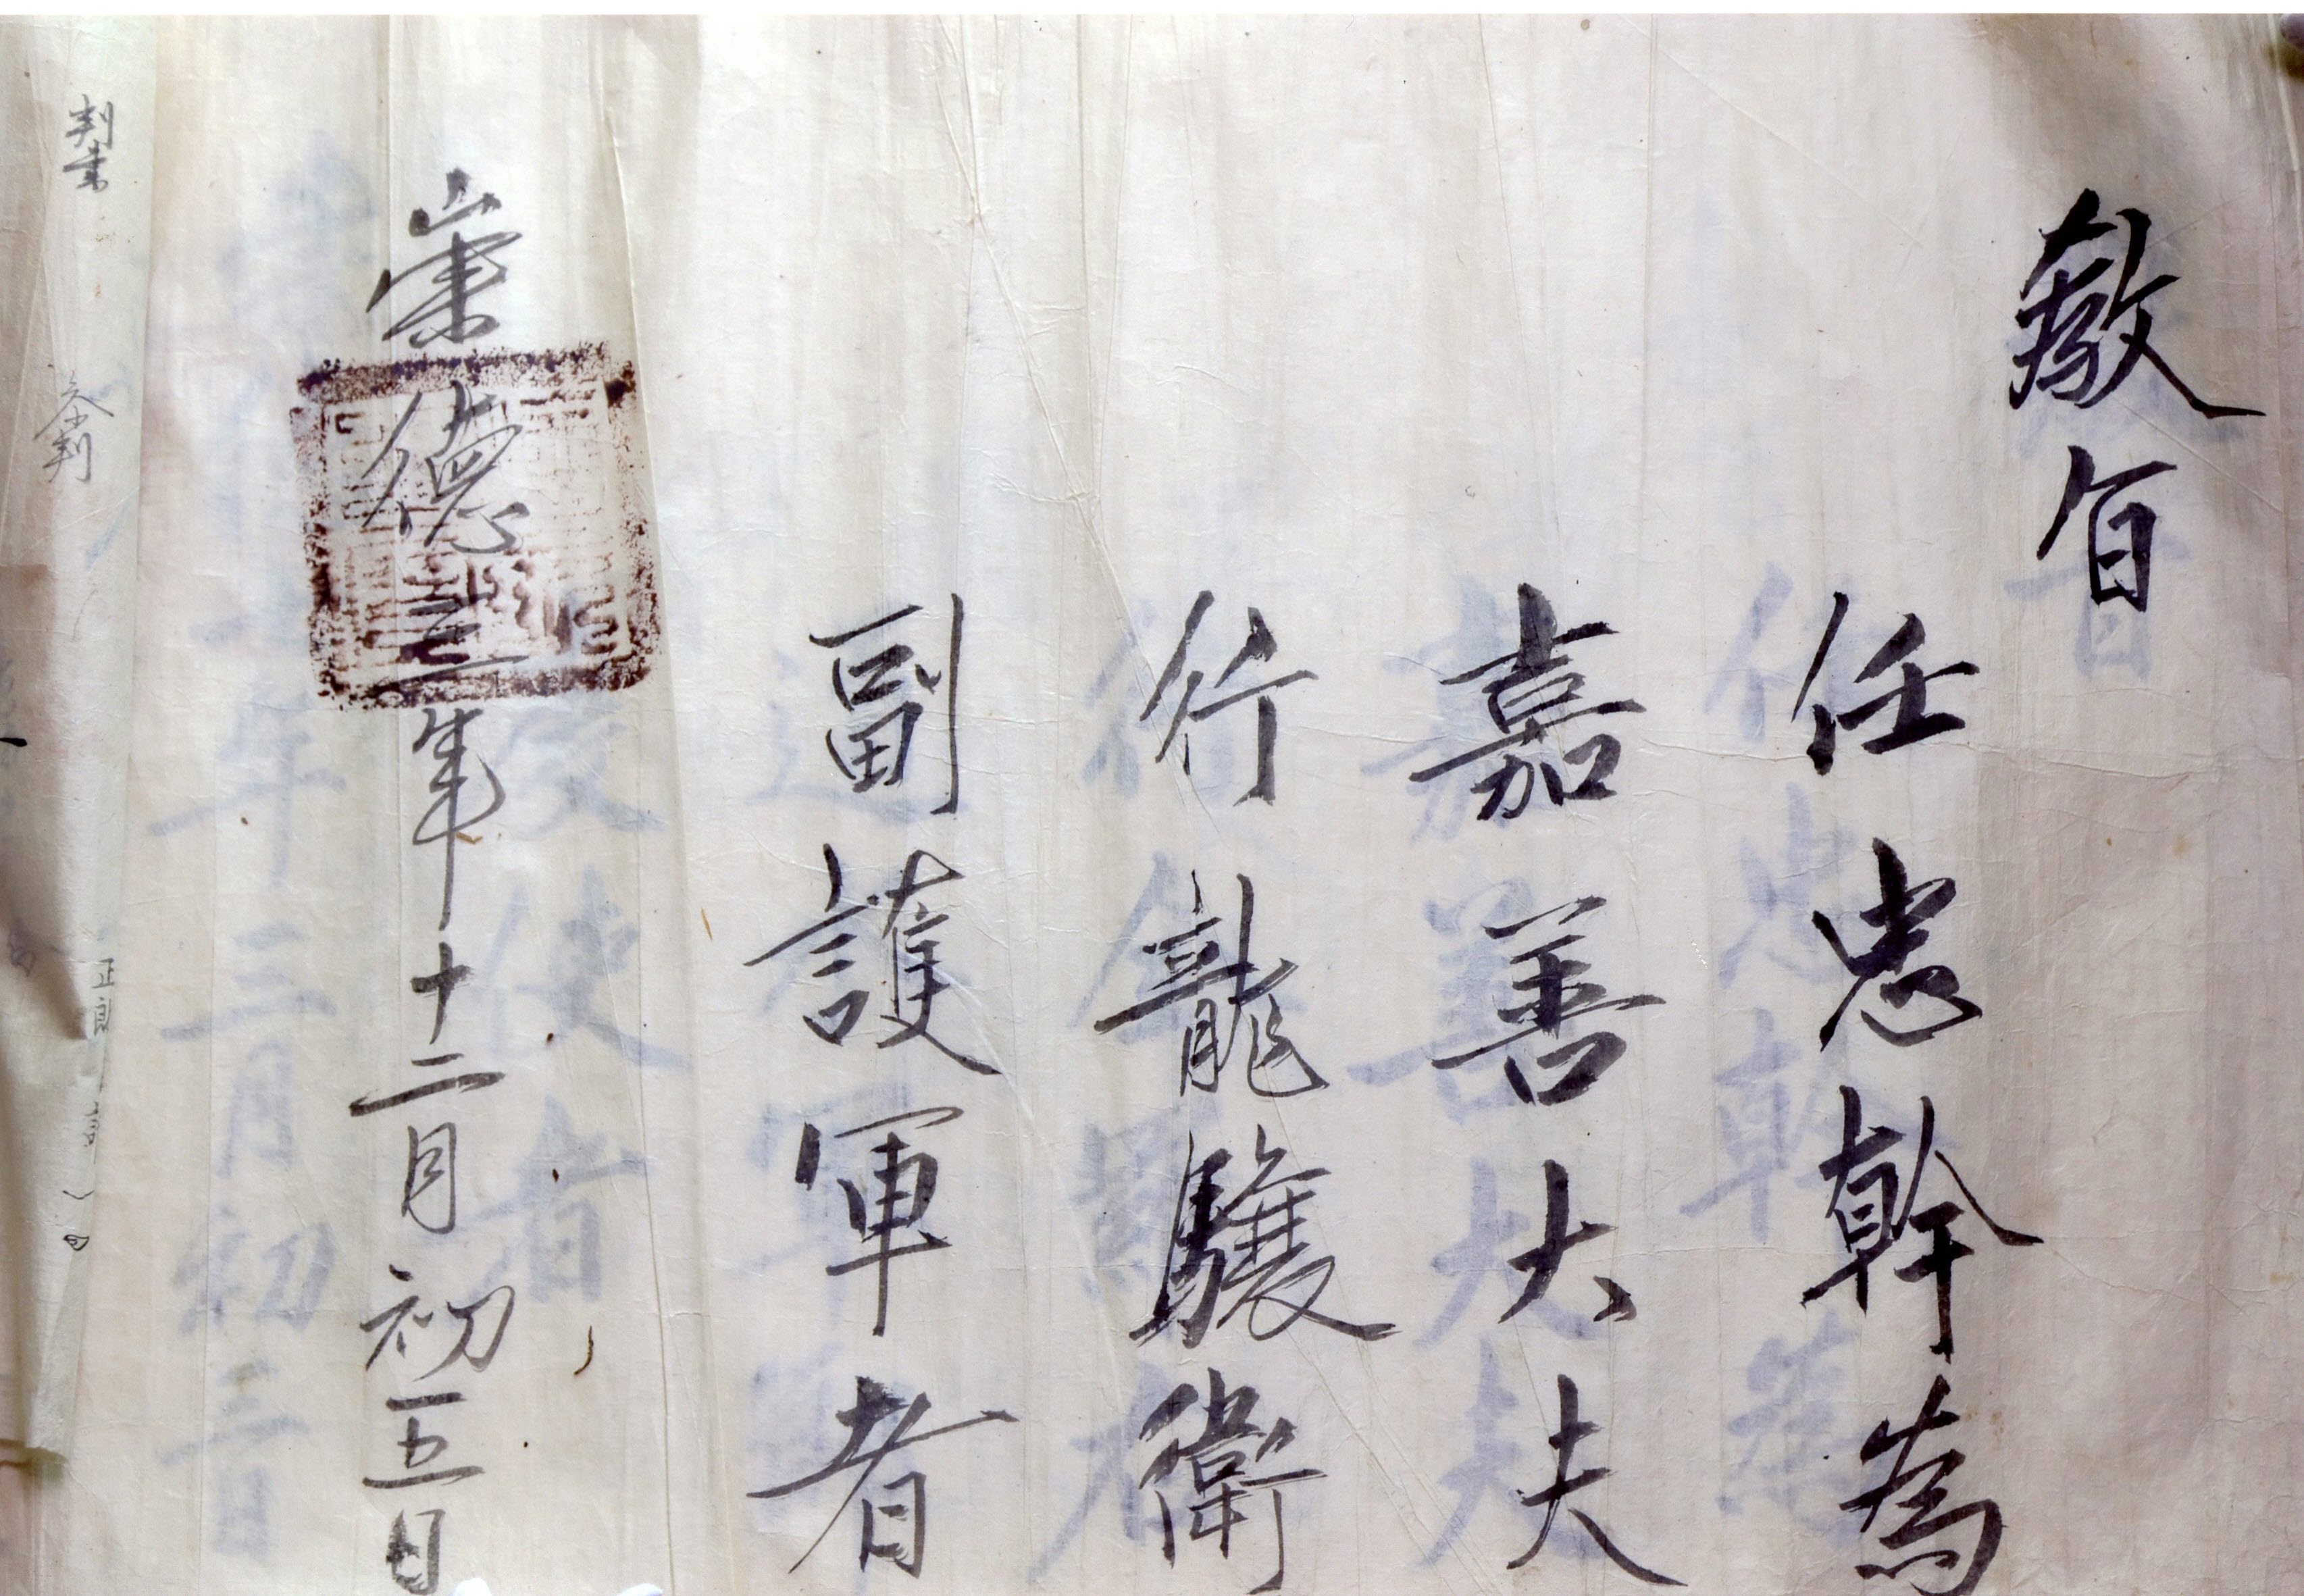 敎旨
任忠幹為
嘉善大夫
行龍驤衛
副護軍者
崇德三年十二月初五日
判書
參判
正郎